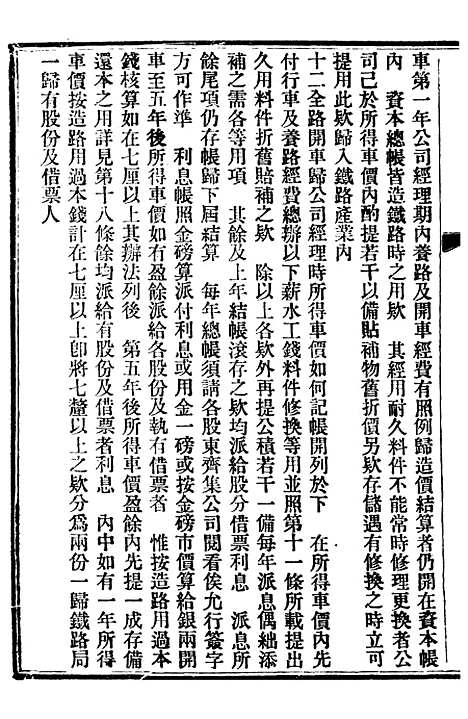 車第一年公司經理期內養路及開車經費有照例歸造價結算者仍開在資本帳
內　資本總帳皆造鐵路時之用欵　其經用耐久料件不能常時修理更換者公
司已於所得車價內酌提若干以備貼補物舊折價另欵存儲遇有修換之時立可
提用此欵歸入鐵路產業內
十二全路開車歸公司經理時所得車價如何記帳開列於下　在所得車價內先
付行車及養路經費總辦以下薪水工錢料件修換等用並照第十一條所載提出
久用料件折舊賠補之欵　除以上各欵外再提公積若干一備每年派息偶絀添
補之需各等用項　其餘及上年結帳滾存之欵均派給股分借票利息　派息所
餘尾項仍存帳歸下屆結算　每年總帳須請各股東齊集公司閱看俟允行簽字
方可作準　利息帳照金磅算派付利息或用金一磅或按金磅市價算給銀兩開
車至五年後所得車價如有盈餘派給股分及執有借票者　惟按造路用過本
錢核算如在七厘以上其辦法列後　第五年後所得車價盈餘內先提一成存備
還本之用詳見第十八條餘均派給有股份及借票者利息　內中如有一年所得
車價按造路用過本錢計在七厘以上卽將七釐以上之欵分爲兩份一歸鐵路局
一歸有股份及借票人